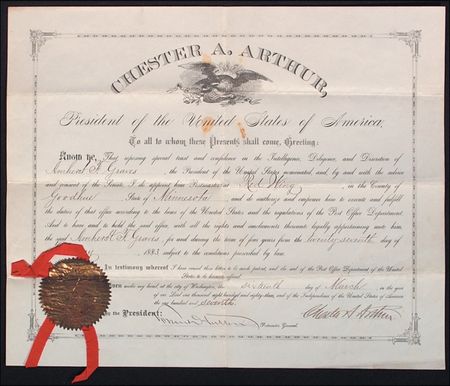 CHESTER A. ARTHUR,
President of the United States of America,
To all to whom these Presents shall come, Greeting:
Know ye, That reposing special trust and confidence in the Intelligence, Diligence, and Discretion of
Graves, the President of the United States nominated and, by and with the advice
and consent of the Senate, I do appoint him Postmaster at Red Wing, in the County of
Goodhue State of Minnesota, and do authorize and empower him to execute and fulfill
the duties of that office according to the laws of the United States and the regulations of the Post Office Department
And to have and to hold the said office, with all the rights and emoluments thereunto legally appertaining unto him
the said Graves, for and during the term of four years from the twenty-seventh day of
1883 subject to the conditions prescribed by law.
In testimony whereof I have caused these letters to be made patent, and the seal of the Post Office Department of the United
States to be hereunto affixed.
under my hand at the city of Washington, the sixteenth day of March in the year
of our Lord one thousand eight hundred and eighty-three, and of the Independence of the United States of America
the one hundred and seventh.
By the President:
Chester A. Arthur
Postmaster General.